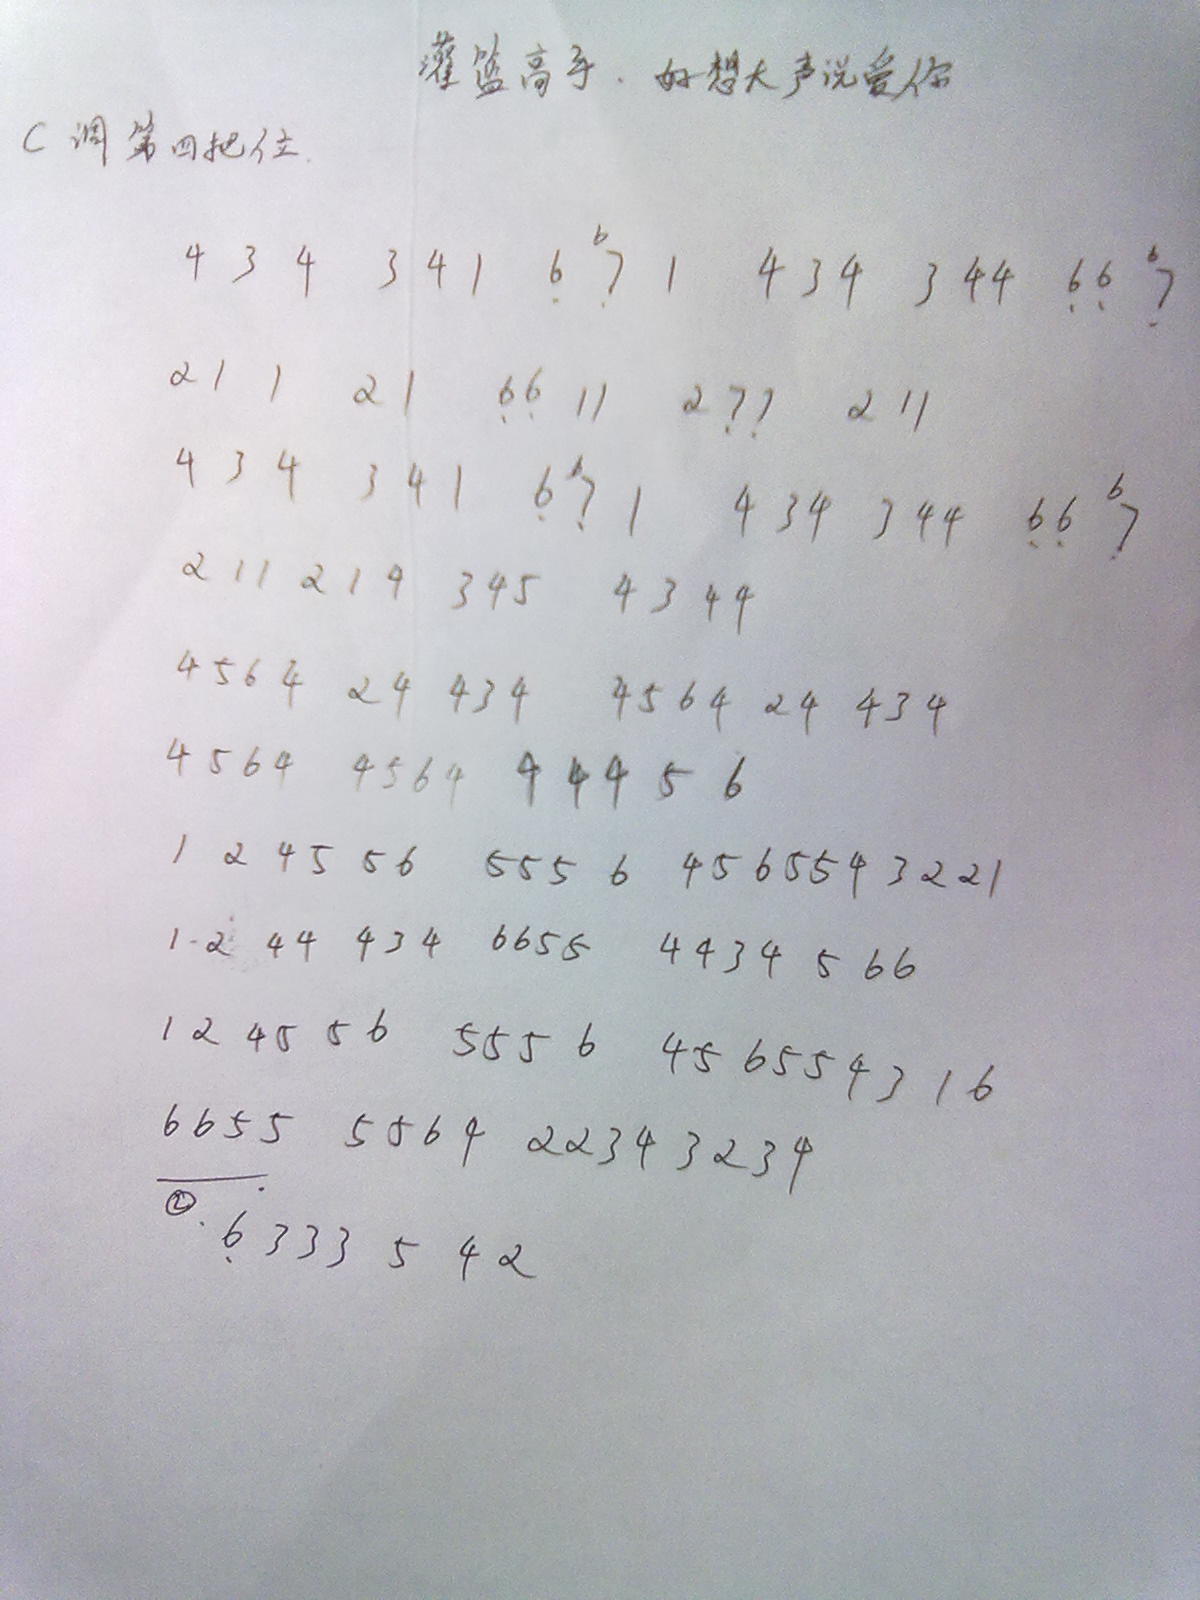 灌篮高手.好想大声说爱你
C调第四把位.
4 3 4 3 4 1 6̣ ♭7̣ 1 4 3 4 3 4 4 6̣ 6̣ ♭7̣
2 1 1 2 1 6̣ 6̣ 1 1 2 7̣ 7̣ 2 1 1
4 3 4 3 4 1 6̣ ♭7̣ 1 4 3 4 3 4 4 6̣ 6̣ ♭7̣
2 1 1 2 1 4 3 4 5 4 3 4 4
4 5 6 4 2 4 4 3 4 4 5 6 4 2 4 4 3 4
4 5 6 4 4 5 6 4 4 4 4 5 6
1 2 4 5 5 6 5 5 5 6 4 5 6 5 5 4 3 2 2 1
1-2 4 4 4 3 4 6 6 5 5 4 4 3 4 5 6 6
1 2 4 5 5 6 5 5 5 6 4 5 6 5 5 4 3 1 6
6 6 5 5 5 5 6 4 2 2 3 4 3 2 3 4
② . 6̣ 3 3 3 5 4 2